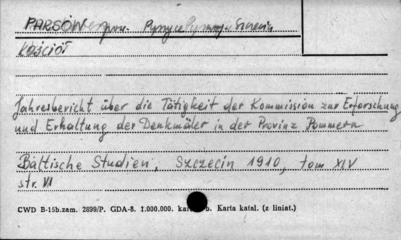 PARSÓW pow. Pyrzyce Szczecin
KOŚCIÓŁ
Jahresbericht über die Tätigkeit der Kommission zur Erforschung
und Erhaltung der Denkmäler in der Provinz Pommern
Baltische Studien, Szczecin 1910, tom XIV
str. VI
CWD B-15b.zam. 2899/P. GDA-8. 1.000.000. Karta katal. (z liniat.)